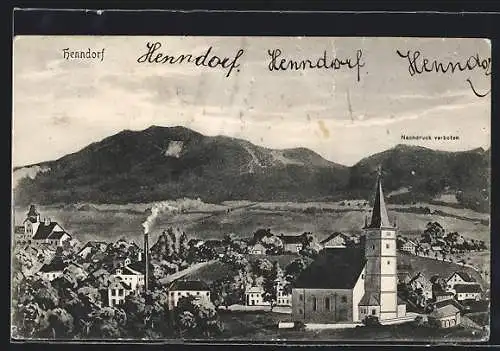 Henndorf
Henndorf Henndorf Henndorf
Nachdruck verboten